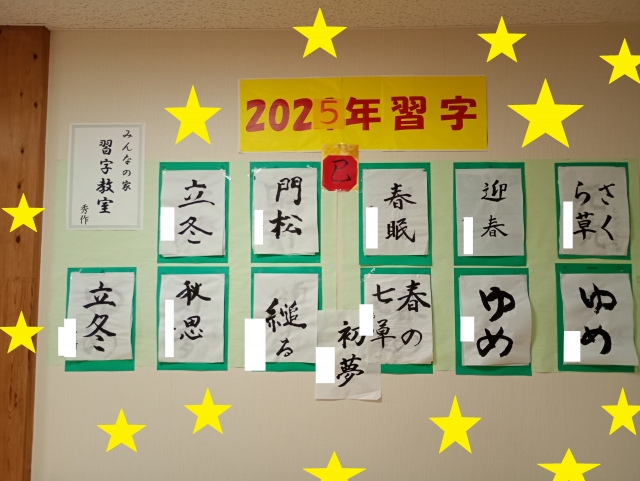 2025年習字
巳
みんなの家
習字教室
秀作
立冬
門松
春眠
迎春
さくら草
立冬
秋思
縋る
初夢
春の七草
ゆめ
ゆめ